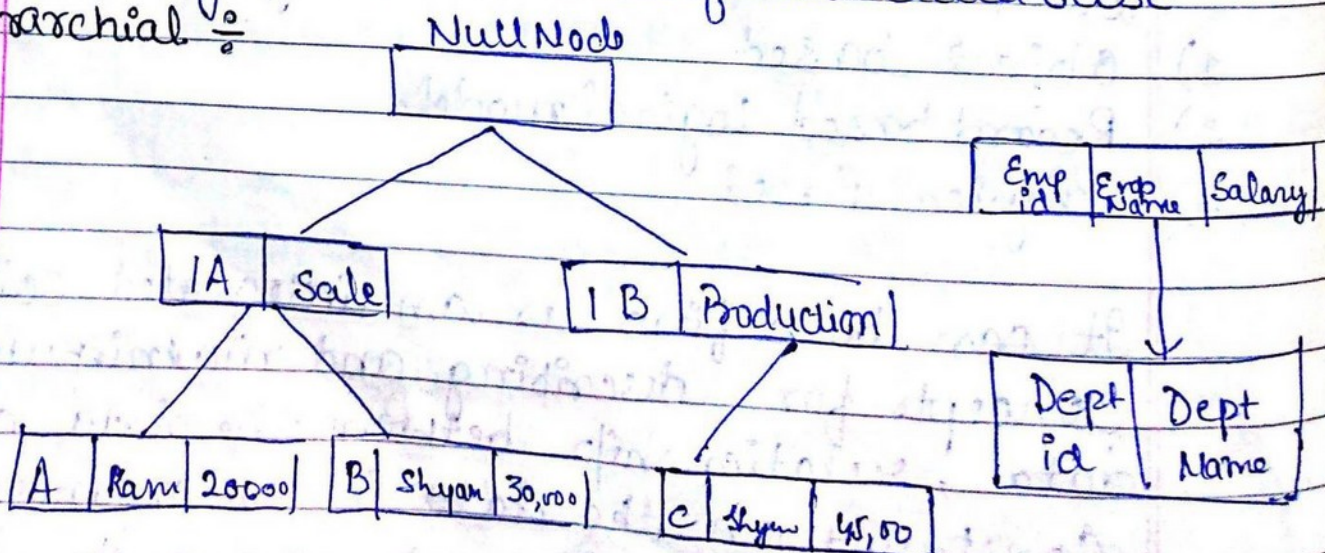 rarchial :-
Null Node
Emp id | Emp Name | Salary
1A | Sale
1B | Production
Dept id | Dept Name
A | Ram | 20000
B | Shyam | 30,000
C | Shyam | 45,00